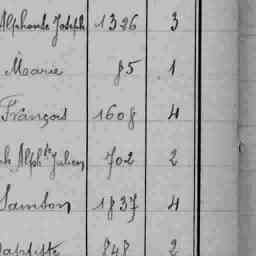 Alphonse Joseph 1326 3
Marie 85 1
François 1608 4
Alph.se Julien 702 2
Samson 1837 4
Baptiste 848 2